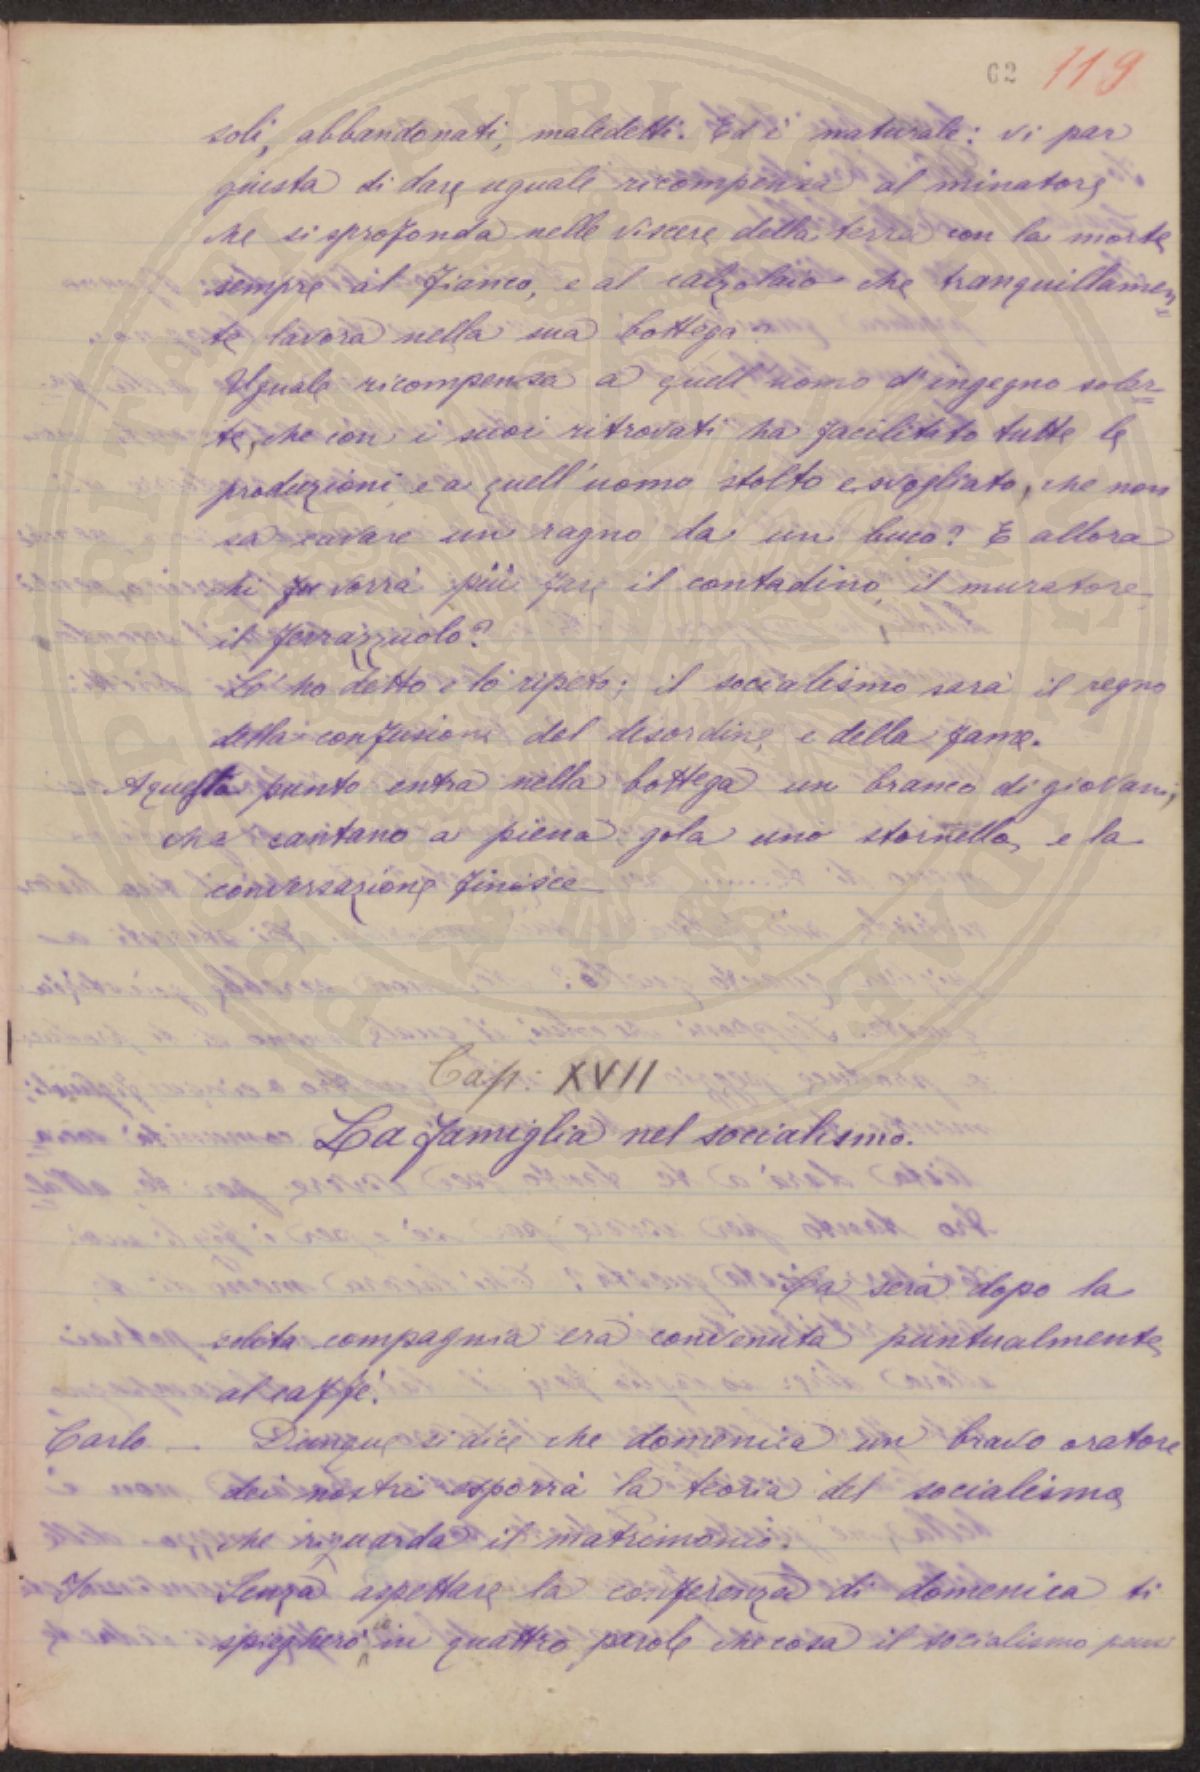 62 119
soli, abbandonati, maledetti. Ed è naturale: vi par
giusta di dare uguale ricompensa al minatore
che si sprofonda nelle viscere della terra con la morte
sempre al fianco, e al calzolaio che tranquillamen
te lavora nella sua bottega?
Uguale ricompensa a quell'uomo d'ingegno soler
te, che con i suoi ritrovati ha facilitato tutte le
produzioni e a quell'uomo stolto e svogliato, che non
sa cavare un ragno da un buco? E allora
chi vorrà più fare il contadino, il muratore
il ferrazzuolo?
Lo ho detto e lo ripeto; il socialismo sarà il regno
della confusione del desordine e della fame.
A questo punto entra nella bottega un branco di giovani,
che cantano a piena gola uno stornello, e la
conversazione finisce
Cap: XVII
La famiglia nel socialismo.
La sera dopo la
solita compagnia era convenuta puntualmente
al caffè.
Carlo - Dunque si dice che domenica un bravo oratore
dei nostri esporrà la teoria del socialismo
che riguarda il matrimonio.
Io - Senza aspettare la conferenza di domenica ti
spiegherò io in quattro parole che cosa il socialismo